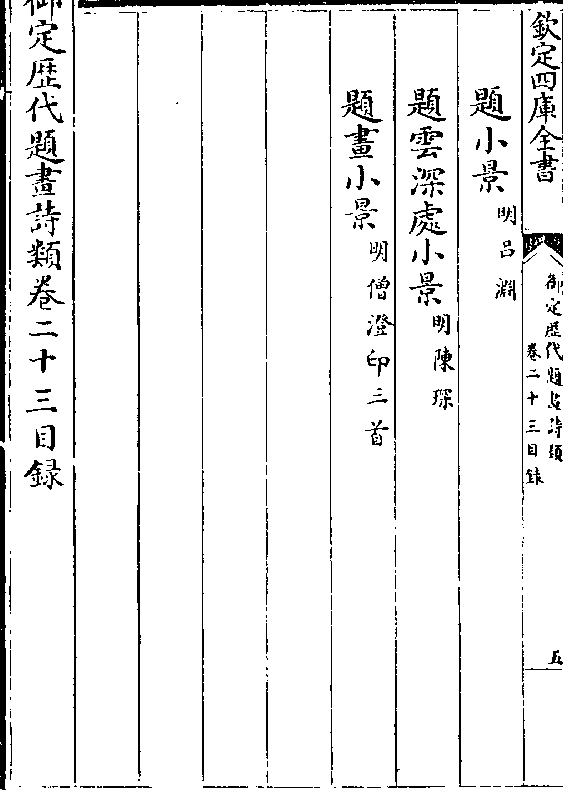 欽定四庫全書
御定歴代題畫詩類
卷二十三目録
五
題小景明吕淵
題雲深處小景明陳琛
題畫小景明僧澄印三首
御定歴代題畫詩類卷二十三目録